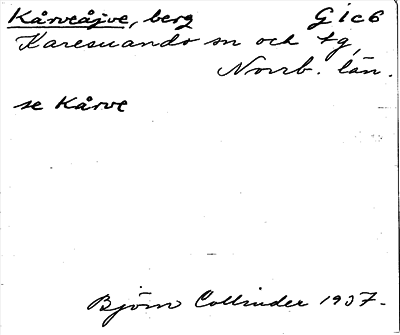 Kårveåjve, berg G i c 6
Karesuando sn och tg,
Norrb. län.
se Kårve
Björn Collinder 1937.